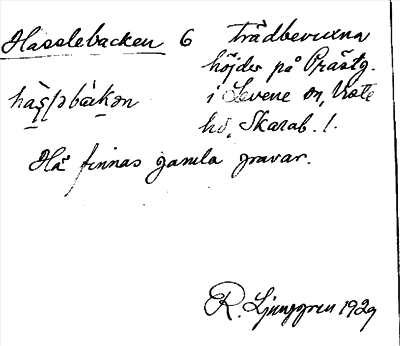 Hasslebacken 6 trädbevuxna
höjder på Prästg.
i Levene sn, Viste
hd, Skarab. l.
Hä finnas gamla gravar.
R. Ljunggren 1929